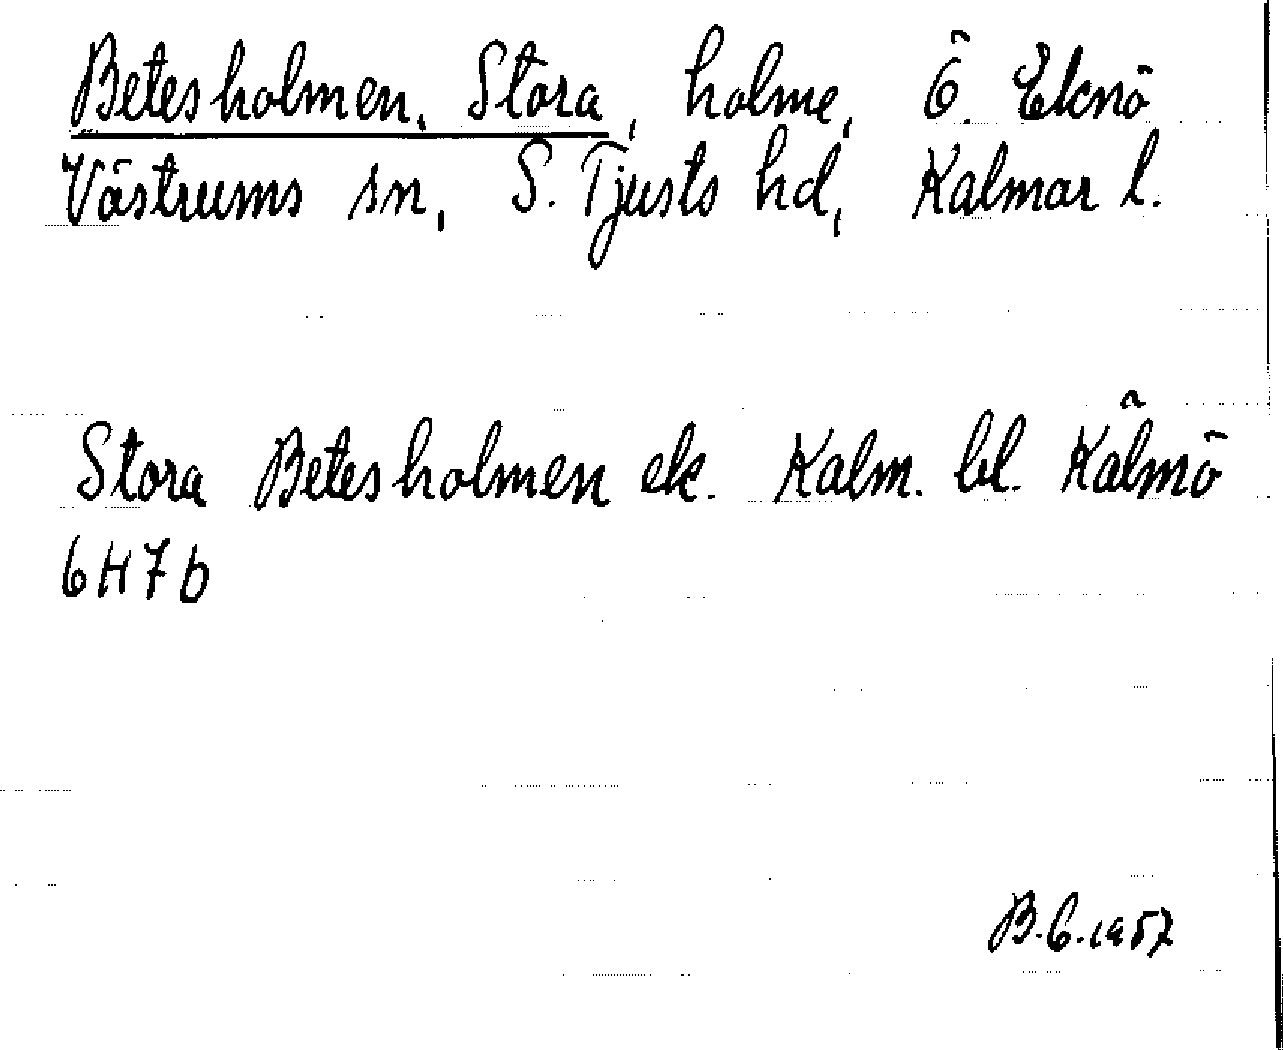 Betesholmen, Stora, holme, Ö. Eknö
Västrums sn, S. Tjusts hd, Kalmar l.
Stora Betesholmen ek. Kalm. bl. Kålmö
6H7b
B.G.1957